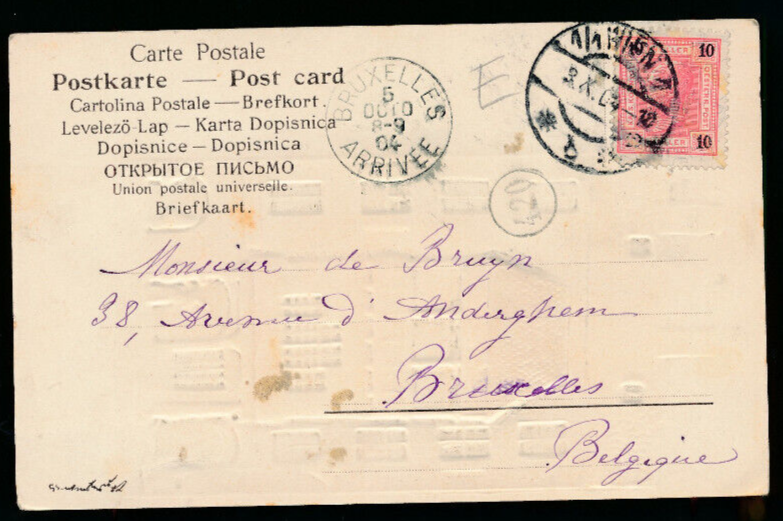 Carte Postale
Postkarte — Post card
Cartolina Postale — Brefkort.
Levelező-Lap — Karta Dopisnica
Dopisnice — Dopisnica
ОТКРЫТОЕ ПИСЬМО
Union postale universelle.
Briefkaart.
BRUXELLES
5
OCTO
8-9
04
ARRIVÉE
E
1/1 WIEN 1
10
10
420
Monsieur de Bruyn
38, Avenue d'Anderghem
Bruxelles
Belgique